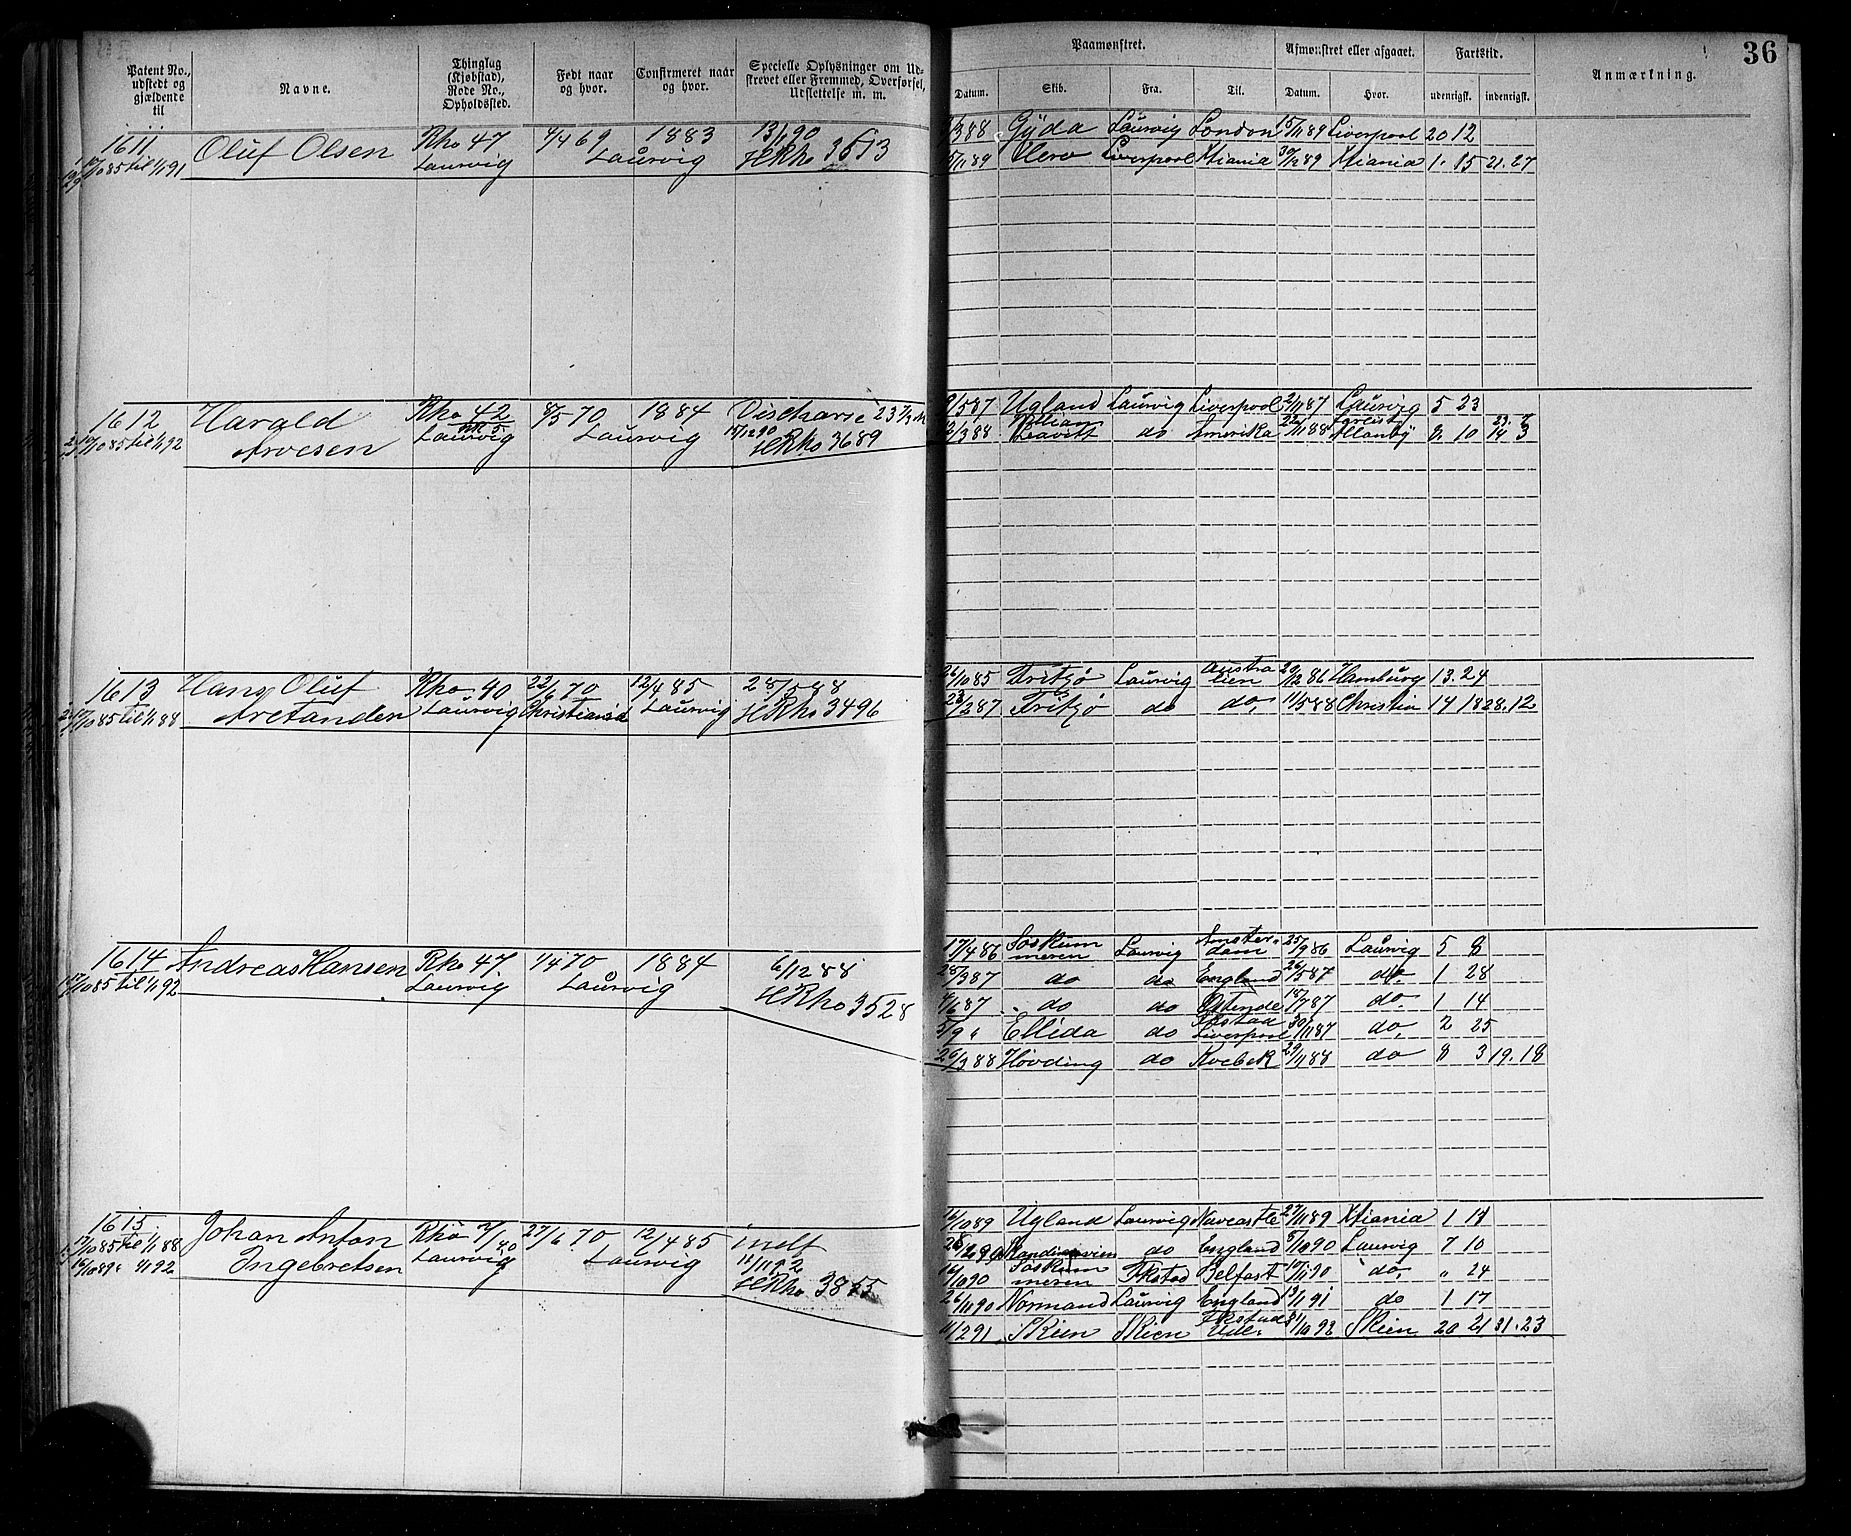 36
Patent No., udstedt og gjældende til
Navne.
Thinglag (Kjøbstad), Rode No., Opholdssted.
Født naar og hvor.
Confirmeret naar og hvor.
Specielle Oplysninger om Udskrevet eller Fremmed, Overførsel, Udslettelse m. m.
Paamønstret.
Afmønstret eller afgaaet.
Fartstid.
Anmærkning.
Datum. Skib. Fra. Til. Datum. Hvor. udenrigsk. indenrigsk.
1611 Oluf Olsen Rho 47 4/4 69 1883 13/1 90
17/10 85 til 1/1 91 Laurvig Laurvig HRho 3613
/3 88 Gyda Laurvig London 15/11 89 Liverpool 20 12
15/11 89 Clero Liverpool Xtiania 30/12 89 Xtiania 1. 15 21. 27
1612 Harald Rho 42 8/5 70 1884
17/10 85 til 1/1 92 Arvesen Laurvig Laurvig 15/12 90 HRho 3689
9/5 87 Ugland Laurvig Liverpool 2/11 87 Laurvig 5 23
/3 88 William Leavitt do Amerika 22/11 88 Allanby 8. 10
1613 Hans Oluf Rho 40 22/6 70 12/4 85 28/5 88
17/10 85 til 1/1 88 Aretanden Laurvig Christiania Laurvig HRho 3496
26/10 85 Fritzø Laurvig Australien 29/12 86 Hamburg 13. 24
23/2 87 Fritzø do do. 11/5 88 Christia 14 18 28. 12
1614 Andreas Hansen Rho 47 1/4 70 1884 6/12 88
17/10 85 til 1/1 92 Laurvig Laurvig HRho 3528
17/4 86 Soskummeren Laurvig Amsterdam 25/9 86 Laurvig 5 8
28/3 87 do do England 26/5 87 do. 1 28
4/6 87 do do Ostende 18/7 87 do. 1 14
5/9 " Ellida do Fkstad Liverpool 30/11 87 do. 2 25
26/3 88 Høvding do Kvebek 29/11 88 do 8 3 19. 18
1615. Johan Anton Rho 2/40 27/6 70 12/4 85
17/10 85 til 1/1 88 Ingebretsen Laurvig Laurvig 11/11 92
16/10 89 " 1/1 92 HRho 3855
16/10 89 Ugland Laurvig Navcastle 27/11 89 Xtiania 1 11
28/2 90 Skandinavien do England 5/10 90 Laurvig 7 10
16/10 90 Soskummeren Fkstad Belfast 17/11 90 do. " 24
26/11 90 Normand Laurvig England 13/1 91 do 1 17
11/2 91 Skien Skien Fkstad Udl. 31/10 92 Skien 20 21 31. 23